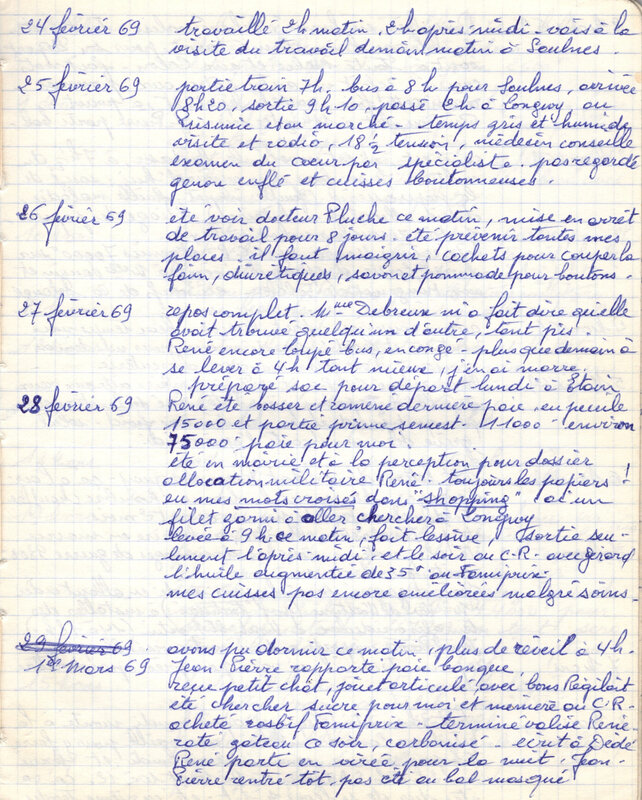 24 février 69 travaillé 2h matin, 2h après midi - vais à la
visite du travail demain matin à Saulnes.
25 février 69 partie train 7h. bus à 8h pour Saulnes, arrivée
8h20, sortie 9h10, passé 2h à Longwy, au
et au marché - temps gris et humide
visite et radio, 18½ tension, médecin conseille
examen du cœur par spécialiste. pas regardé
genou enflé et cuisses boutonneuses.
26 février 69 été voir docteur Pluche ce matin, mise en arrêt
de travail pour 8 jours. été prévenir toutes mes
places. il faut maigrir, cachets pour couper la
faim, diurétiques, savon et pommade pour boutons.
27 février 69 repos complet. Mme Debreux m'a fait dire qu'elle
avait trouvé quelqu'un d'autre, tant pis.
René encore loupé bus, en congé - plus que demain à
se lever à 4h tant mieux, j'en ai marre.
préparé sac pour départ lundi à Etain
28 février 69 René été bosser et ramené dernière paie, en pécule
15000 et partie prime semest. 11000 - environ
75000 paie pour moi.
été en mairie et à la perception pour dossier
allocation militaire René - toujours les papiers !
eu mes mots croisés dans "shopping" ai un
filet garni à aller chercher à Longwy
levée à 9h ce matin, fait lessive, sortie seu-
lement l'après-midi, et le soir au C-R. avec gérard
l'huile augmentée de 35 au Famiprix
mes cuisses pas encore améliorées malgré soins -
29 février 69 avons pu dormir ce matin, plus de réveil à 4h -
1er Mars 69 Jean Pierre rapporté paie banque
reçu petit chat, jouet articulé, avec bons Régilait
été chercher sucre pour moi et mémère au C-R.
acheté rosbif Famiprix - terminé valise René -
raté gâteau ce soir, carbonisé - écrit à Dédé
René parti en virée pour la nuit, Jean-
Pierre rentré tôt, pas été au bal masqué